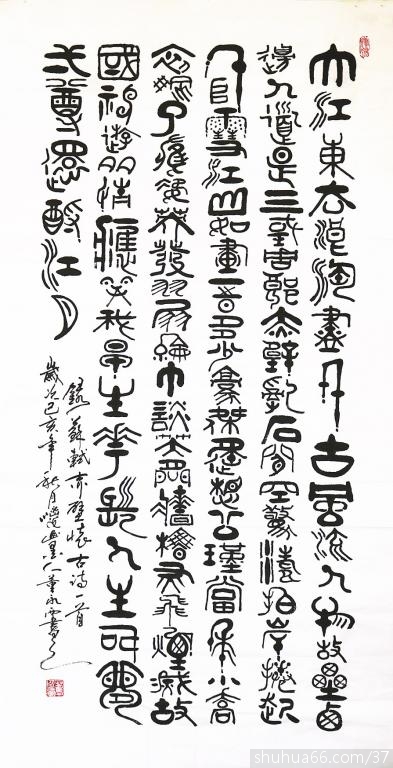 大江東去浪淘盡千古風流人物故壘西
邊人道是三國周郎赤壁亂石穿空驚濤拍岸捲起
千堆雪江山如畫一時多少豪傑遙想公瑾當年小喬
初嫁了雄姿英發羽扇綸巾談笑間牆櫓灰飛煙滅故
國神遊多情應笑我早生華髮人生如夢
一尊還酹江月
錄蘇軾赤壁懷古詩一首
歲次己亥年秋月
shuhua66.com/37